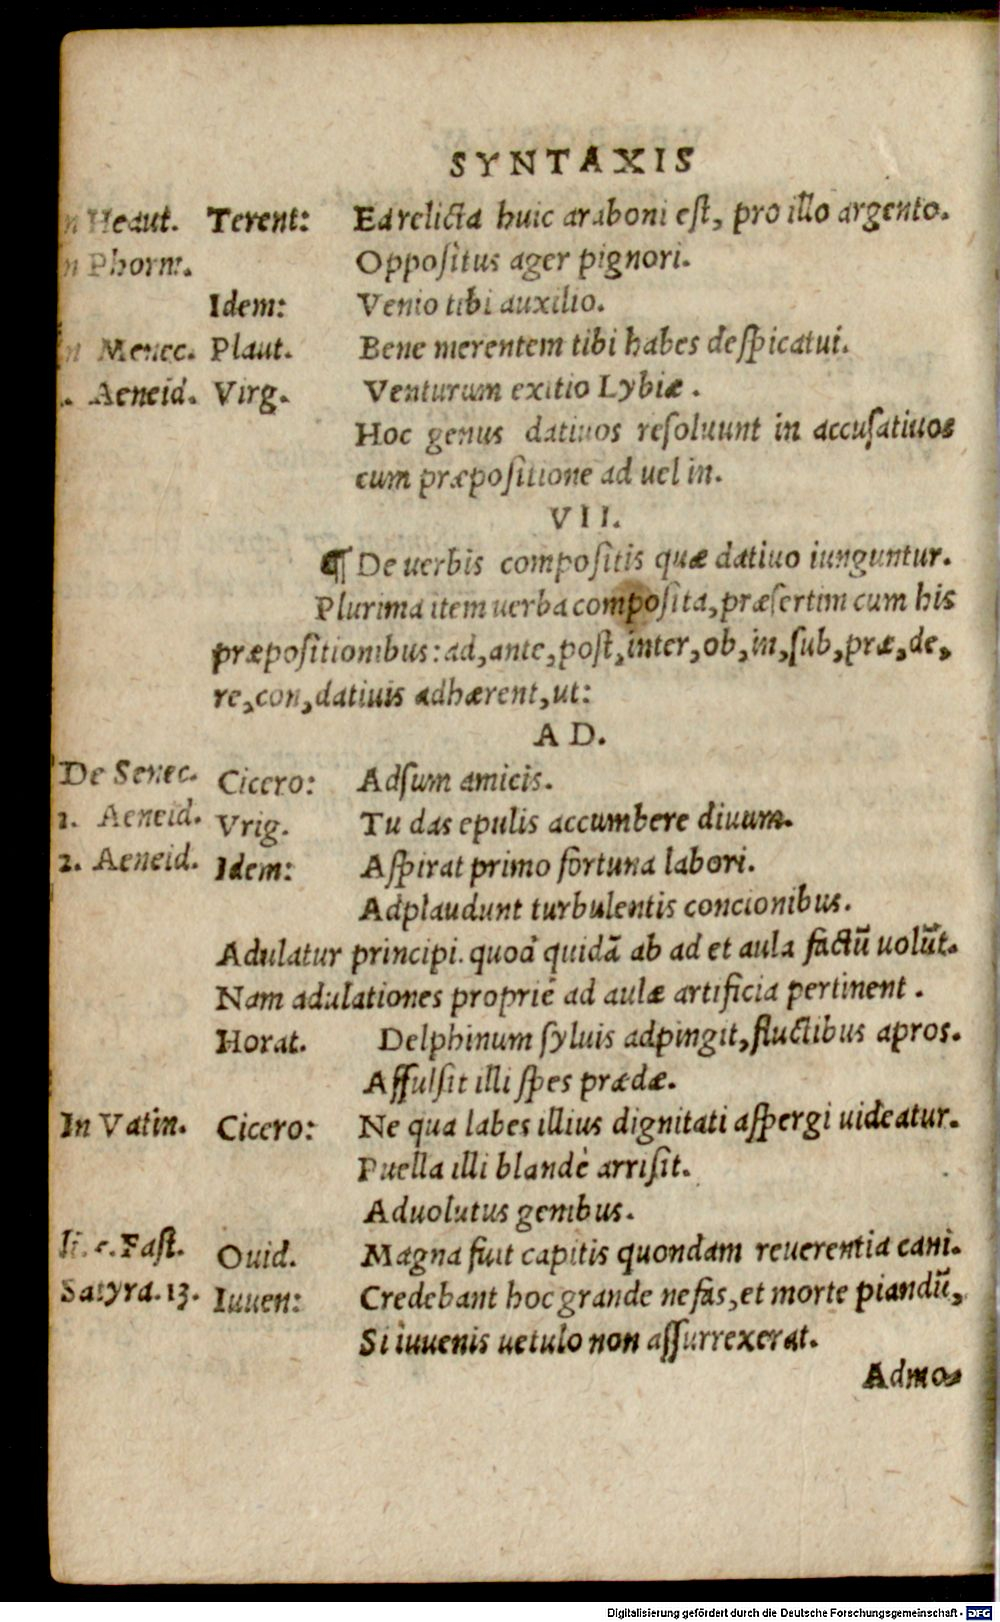 SYNTAXIS
n Heaut. Terent: Ea relicta huic araboni est, pro illo argento.
n Phorm. Oppositus ager pignori.
Idem: Venio tibi auxilio.
n Menec. Plaut. Bene merentem tibi habes despicatui.
. Aeneid. Virg. Venturum exitio Lybiæ.
Hoc genus datiuos resoluunt in accusatiuos
cum præpositione ad uel in.
VII.
¶ De uerbis compositis quæ datiuo iunguntur.
Plurima item uerba composita, præsertim cum his
præpositionibus: ad, ante, post, inter, ob, in, sub, præ, de,
re, con, datiuis adhærent, ut:
AD.
De Senec. Cicero: Adsum amicis.
1. Aeneid. Vrig. Tu das epulis accumbere diuum.
2. Aeneid. Idem: Aspirat primo fortuna labori.
Adplaudunt turbulentis concionibus.
Adulatur principi. quod quidã ab ad et aula factũ uolũt.
Nam adulationes propriè ad aulæ artificia pertinent.
Horat. Delphinum syluis adpingit, fluctibus apros.
Affulsit illi spes prædæ.
In Vatin. Cicero: Ne qua labes illius dignitati aspergi uideatur.
Puella illi blandè arrisit.
Aduolutus genibus.
Fast. Ouid. Magna fuit capitis quondam reuerentia cani.
Satyra. 13. Iuuen: Credebant hoc grande nefas, et morte piandũ,
Si iuuenis uetulo non assurrexerat.
Admo-
Digitalisierung gefördert durch die Deutsche Forschungsgemeinschaft - DFG